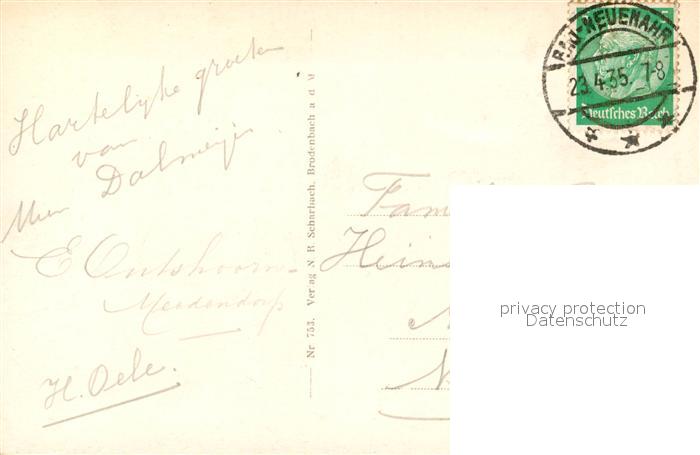 Hartelijke groeten
van
Dalmeijer
E Ontshoorn-
Meerdendorp
H. Oele.
Nr 753. Verlag N. B. Scharbach, Brodenbach a d M
BAD-NEUENAHR
23.4.35. 7-8
Deutsches Reich
Fam
Heins
privacy protection
Datenschutz